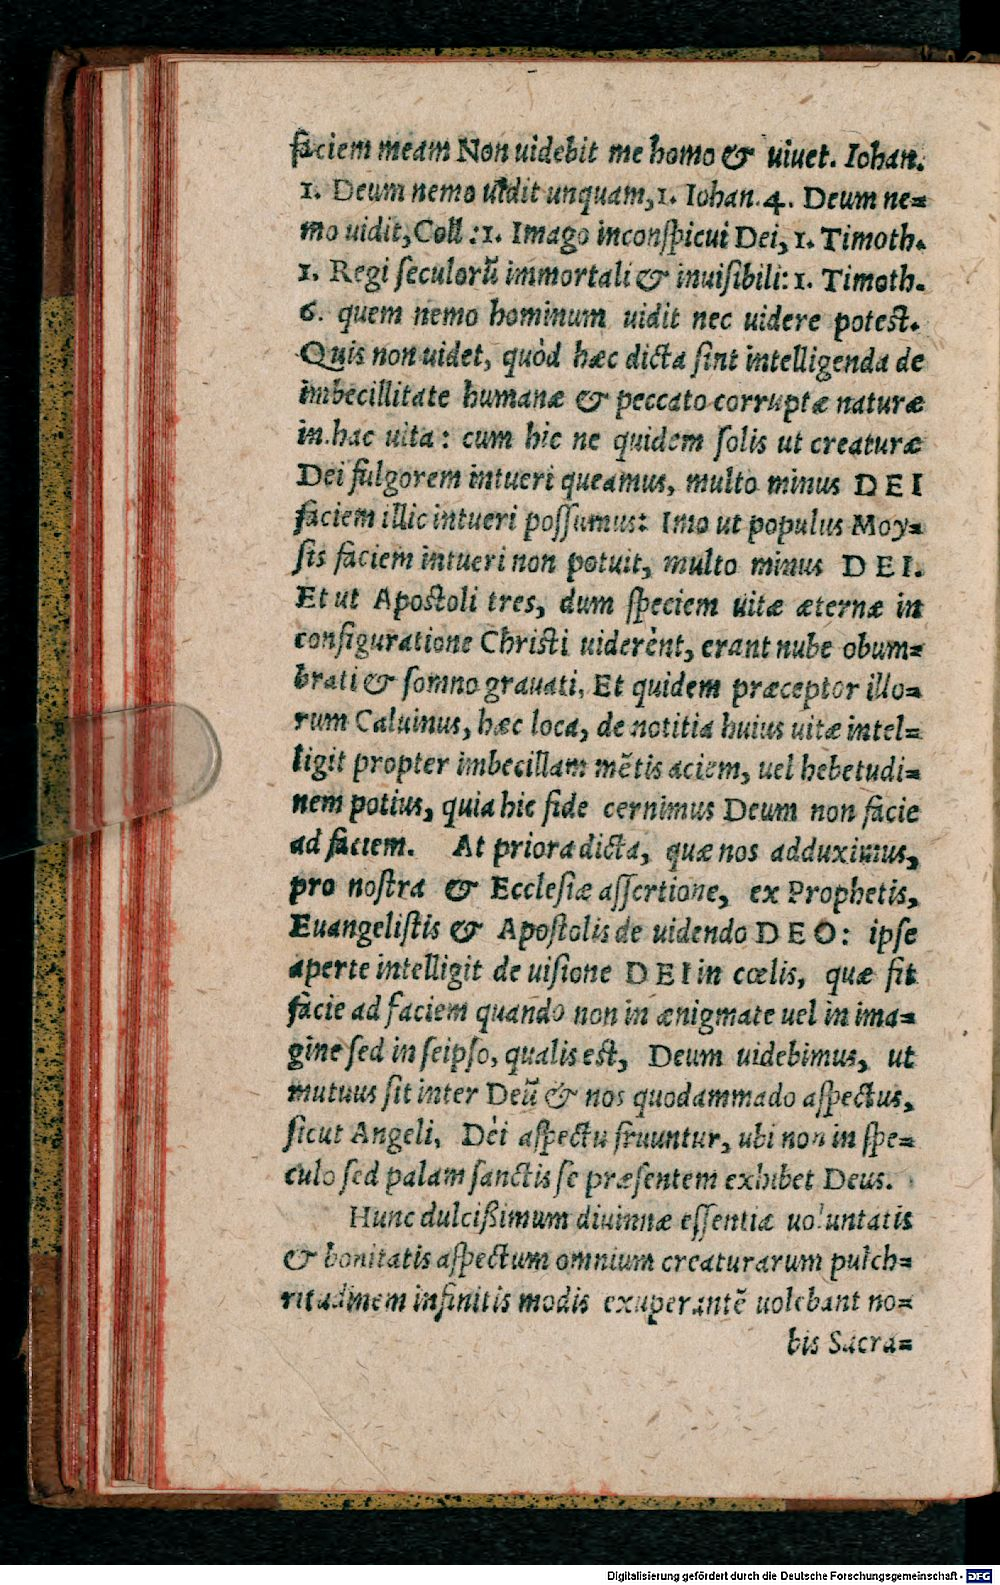 faciem meam Non uidebit me homo & uiuet. Iohan.
1. Deum nemo uidit unquam, 1. Iohan. 4. Deum ne=
mo uidit, Coll: 1. Imago inconspicui Dei, 1. Timoth.
1. Regi seculorũ immortali & inuisibili: 1. Timoth.
6. quem nemo hominum uidit nec uidere potest.
Quis non uidet, quòd hæc dicta sint intelligenda de
imbecillitate humanæ & peccato corruptæ naturæ
in hac uita: cum hic ne quidem solis ut creaturæ
Dei fulgorem intueri queamus, multo minus DEI
faciem illic intueri possumus: Imo ut populus Moy=
sis faciem intueri non potuit, multo minus DEI.
Et ut Apostoli tres, dum speciem uitæ æternæ in
configuratione Christi uiderènt, erant nube obum=
brati & somno grauati, Et quidem præceptor illo=
rum Caluinus, hæc loca, de notitia huius uitæ intel=
ligit propter imbecillam mẽtis aciem, uel hebetudi=
nem potius, quia hic fide cernimus Deum non facie
ad faciem. At priora dicta, quæ nos adduximus,
pro nostra & Ecclesiæ assertione, ex Prophetis,
Euangelistis & Apostolis de uidendo DEO: ipse
aperte intelligit de uisione DEI in cœlis, quæ fit
facie ad faciem quando non in ænigmate uel in ima=
gine sed in seipso, qualis est, Deum uidebimus, ut
mutuus sit inter Deũ & nos quodammado aspectus,
sicut Angeli, Dèi aspectu fruuntur, ubi non in spe=
culo sed palam sanctis se præsentem exhibet Deus.
Hunc dulcißimum diuinnæ essentiæ uoluntatis
& bonitatis aspectum omnium creaturarum pulch=
ritudinem infinitis modis exuperantẽ uolebant no=
bis Sacra=
Digitalisierung gefördert durch die Deutsche Forschungsgemeinschaft - DFG